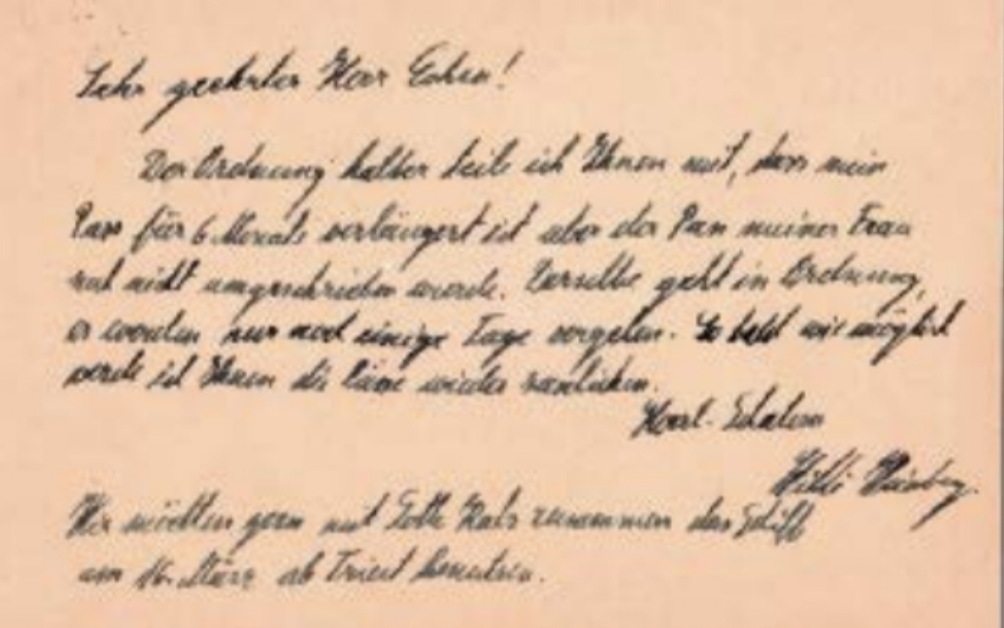 Sehr geehrter Herr Cohen!
Der Ordnung halber teile ich Ihnen mit, dass mein
Pass für 6 Monate verlängert ist aber der Pass meiner Frau
erst nicht umgeschrieben wurde. Derselbe geht in Ordnung,
es werden nur noch einige Tage vergehen. So bald wie möglich
werde ich Ihnen die Pässe wieder zuschicken.
Schalom
Wir möchten gern mit zusammen das Schiff
am 16. März ab Triest benutzen.